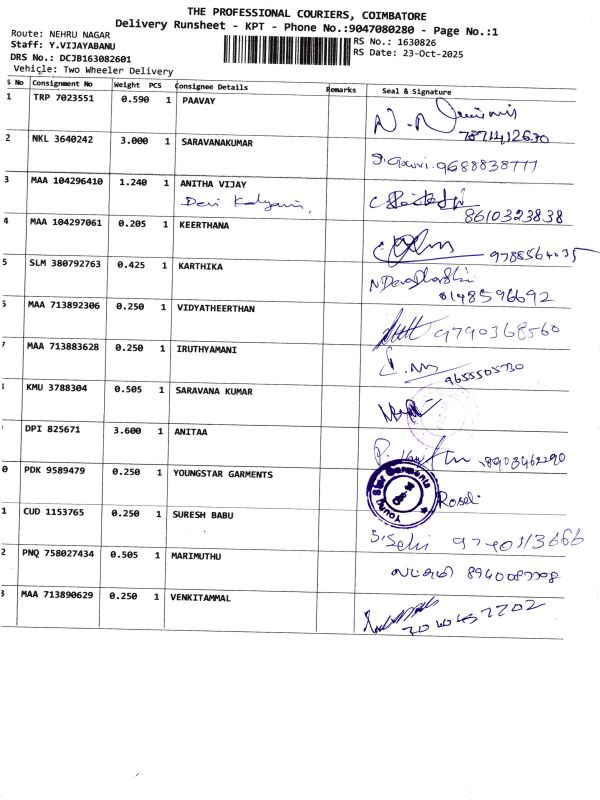 THE PROFESSIONAL COURIERS, COIMBATORE
Delivery Runsheet - KPT - Phone No.:9047080280 - Page No.:1
Route: NEHRU NAGAR
RS No.: 1630826
Staff: Y.VIJAYABANU
RS Date: 23-Oct-2025
DRS No.: DCJB163082601
Vehicle: Two Wheeler Delivery
S No Consignment No Weight PCS Consignee Details Remarks Seal & Signature
1 TRP 7023551 0.590 1 PAAVAY
7871412630
2 NKL 3640242 3.000 1 SARAVANAKUMAR
S. Gowri. 9688838777
3 MAA 104296410 1.240 1 ANITHA VIJAY
Devi Kalyani.
8610323838
4 MAA 104297061 0.205 1 KEERTHANA
9788564035
5 SLM 380792763 0.425 1 KARTHIKA
6 MAA 713892306 0.250 1 VIDYATHEERTHAN
9790368560
7 MAA 713883628 0.250 1 IRUTHYAMANI
9655505730
KMU 3788304 0.505 1 SARAVANA KUMAR
DPI 825671 3.600 1 ANITAA
8903462290
0 PDK 9589479 0.250 1 YOUNGSTAR GARMENTS
Young Star Garments
Rosel
1 CUD 1153765 0.250 1 SURESH BABU
S. Selvi 9740113666
2 PNQ 758027434 0.505 1 MARIMUTHU
3 MAA 713890629 0.250 1 VENKITAMMAL